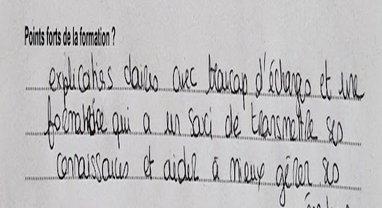 Points forts de la formation ?
explications claires avec beaucoup d'échanges et une
formatrice qui a un souci de transmettre ses
connaissances et aider à mieux gérer ses